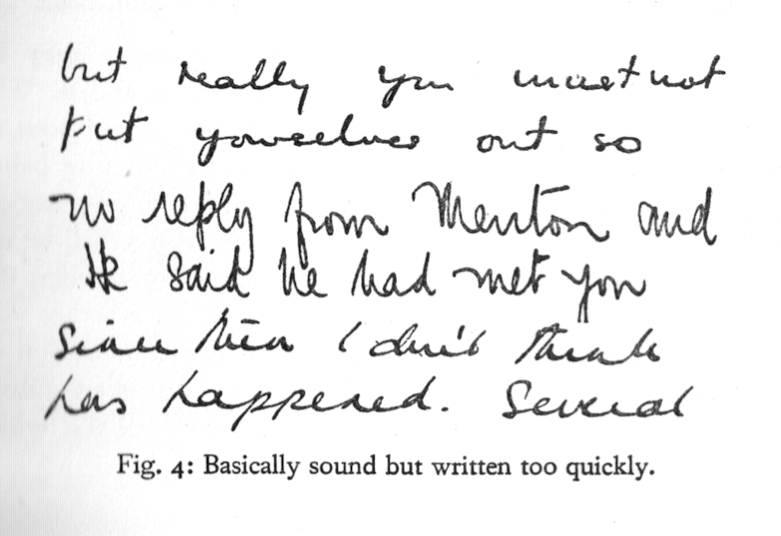 but really you must not
put yourselves out so
no reply from Menton and
He said he had met you
Since then I don't think
has happened. Several
Fig. 4: Basically sound but written too quickly.